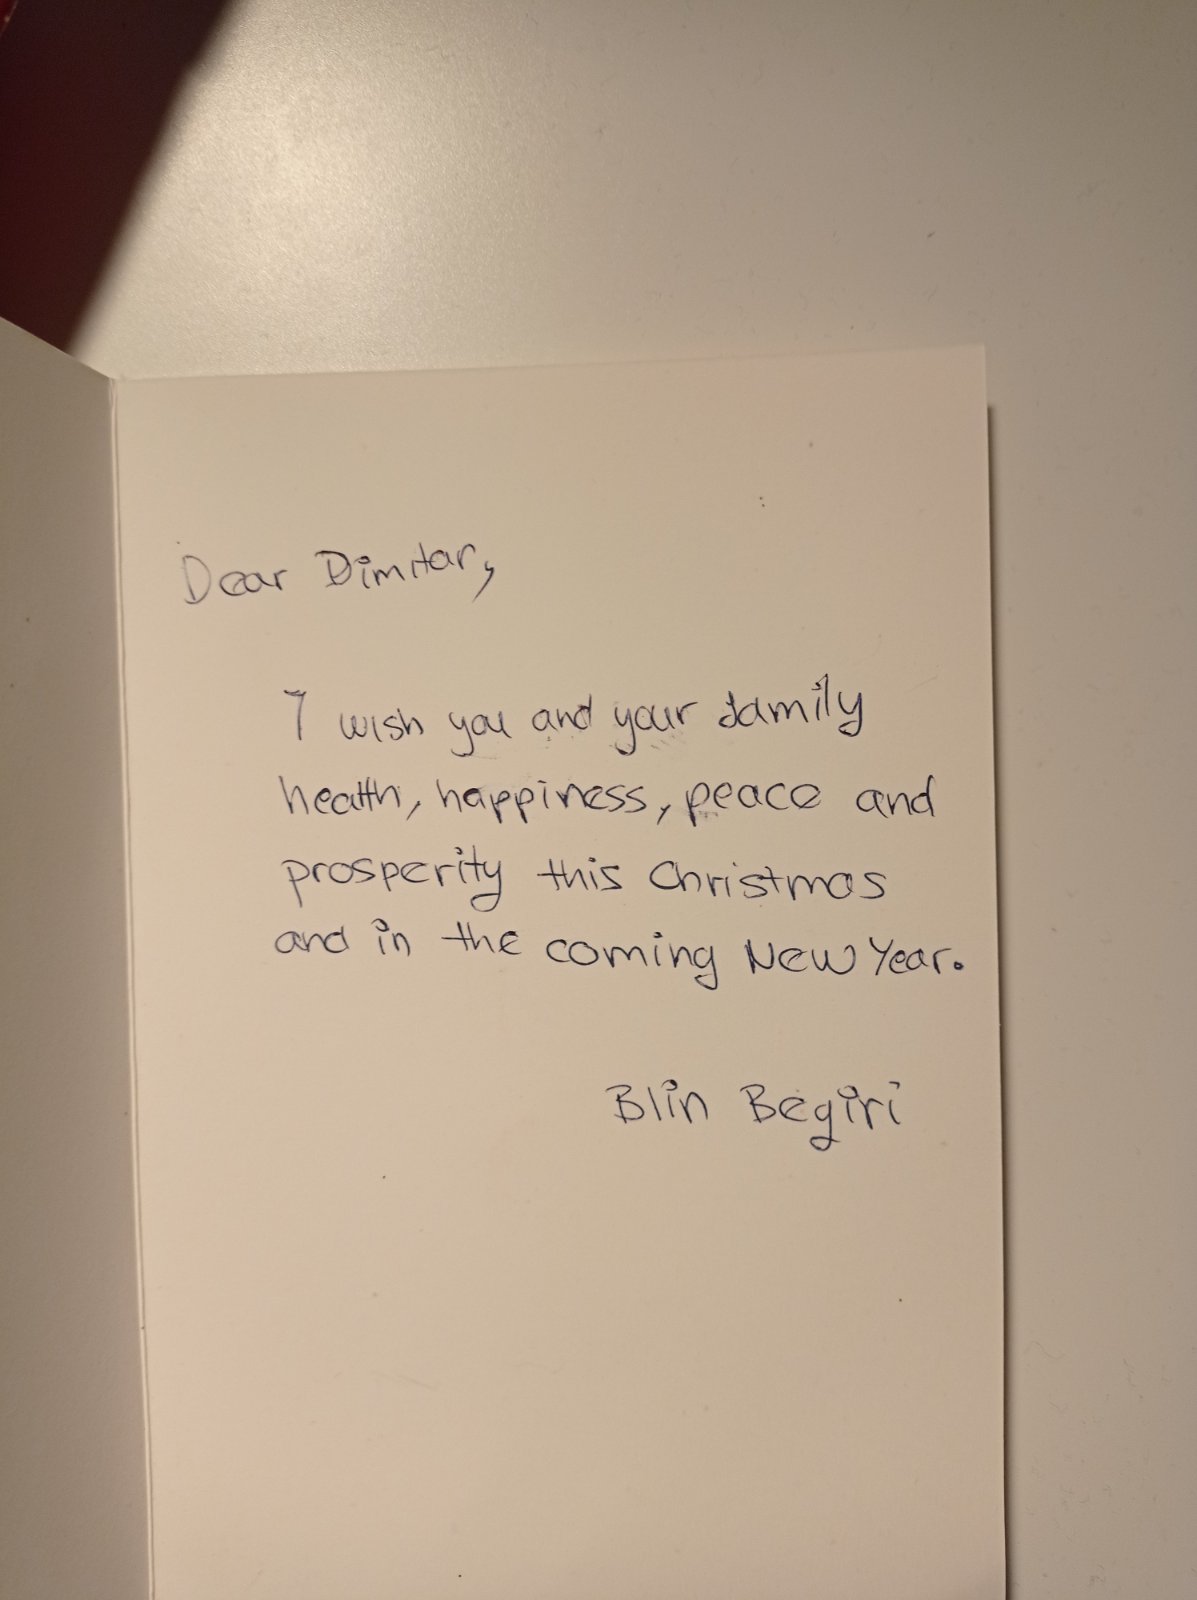 Dear Dimitar,
I wish you and your family
health, happiness, peace and
prosperity this Christmas
and in the coming New Year.
Blin Begiri